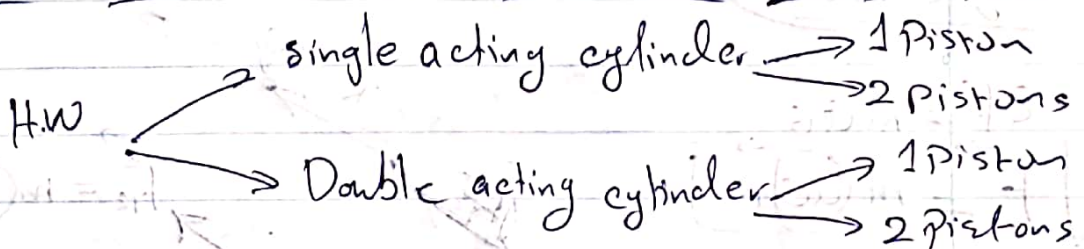 single acting cylinder → 1 Piston
→ 2 Pistons
H.W
Double acting cylinder → 1 Piston
→ 2 Pistons